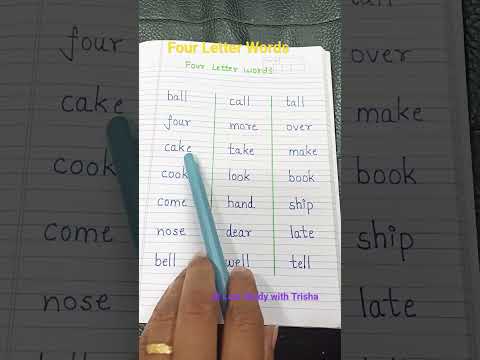 Four Letter Words
Four Letter words
ball call tall
four more over
cake take make
cook look book
come hand ship
nose dear late
bell well tell
Study with Trisha
four
cake
cook
come
nose
over
make
book
ship
late